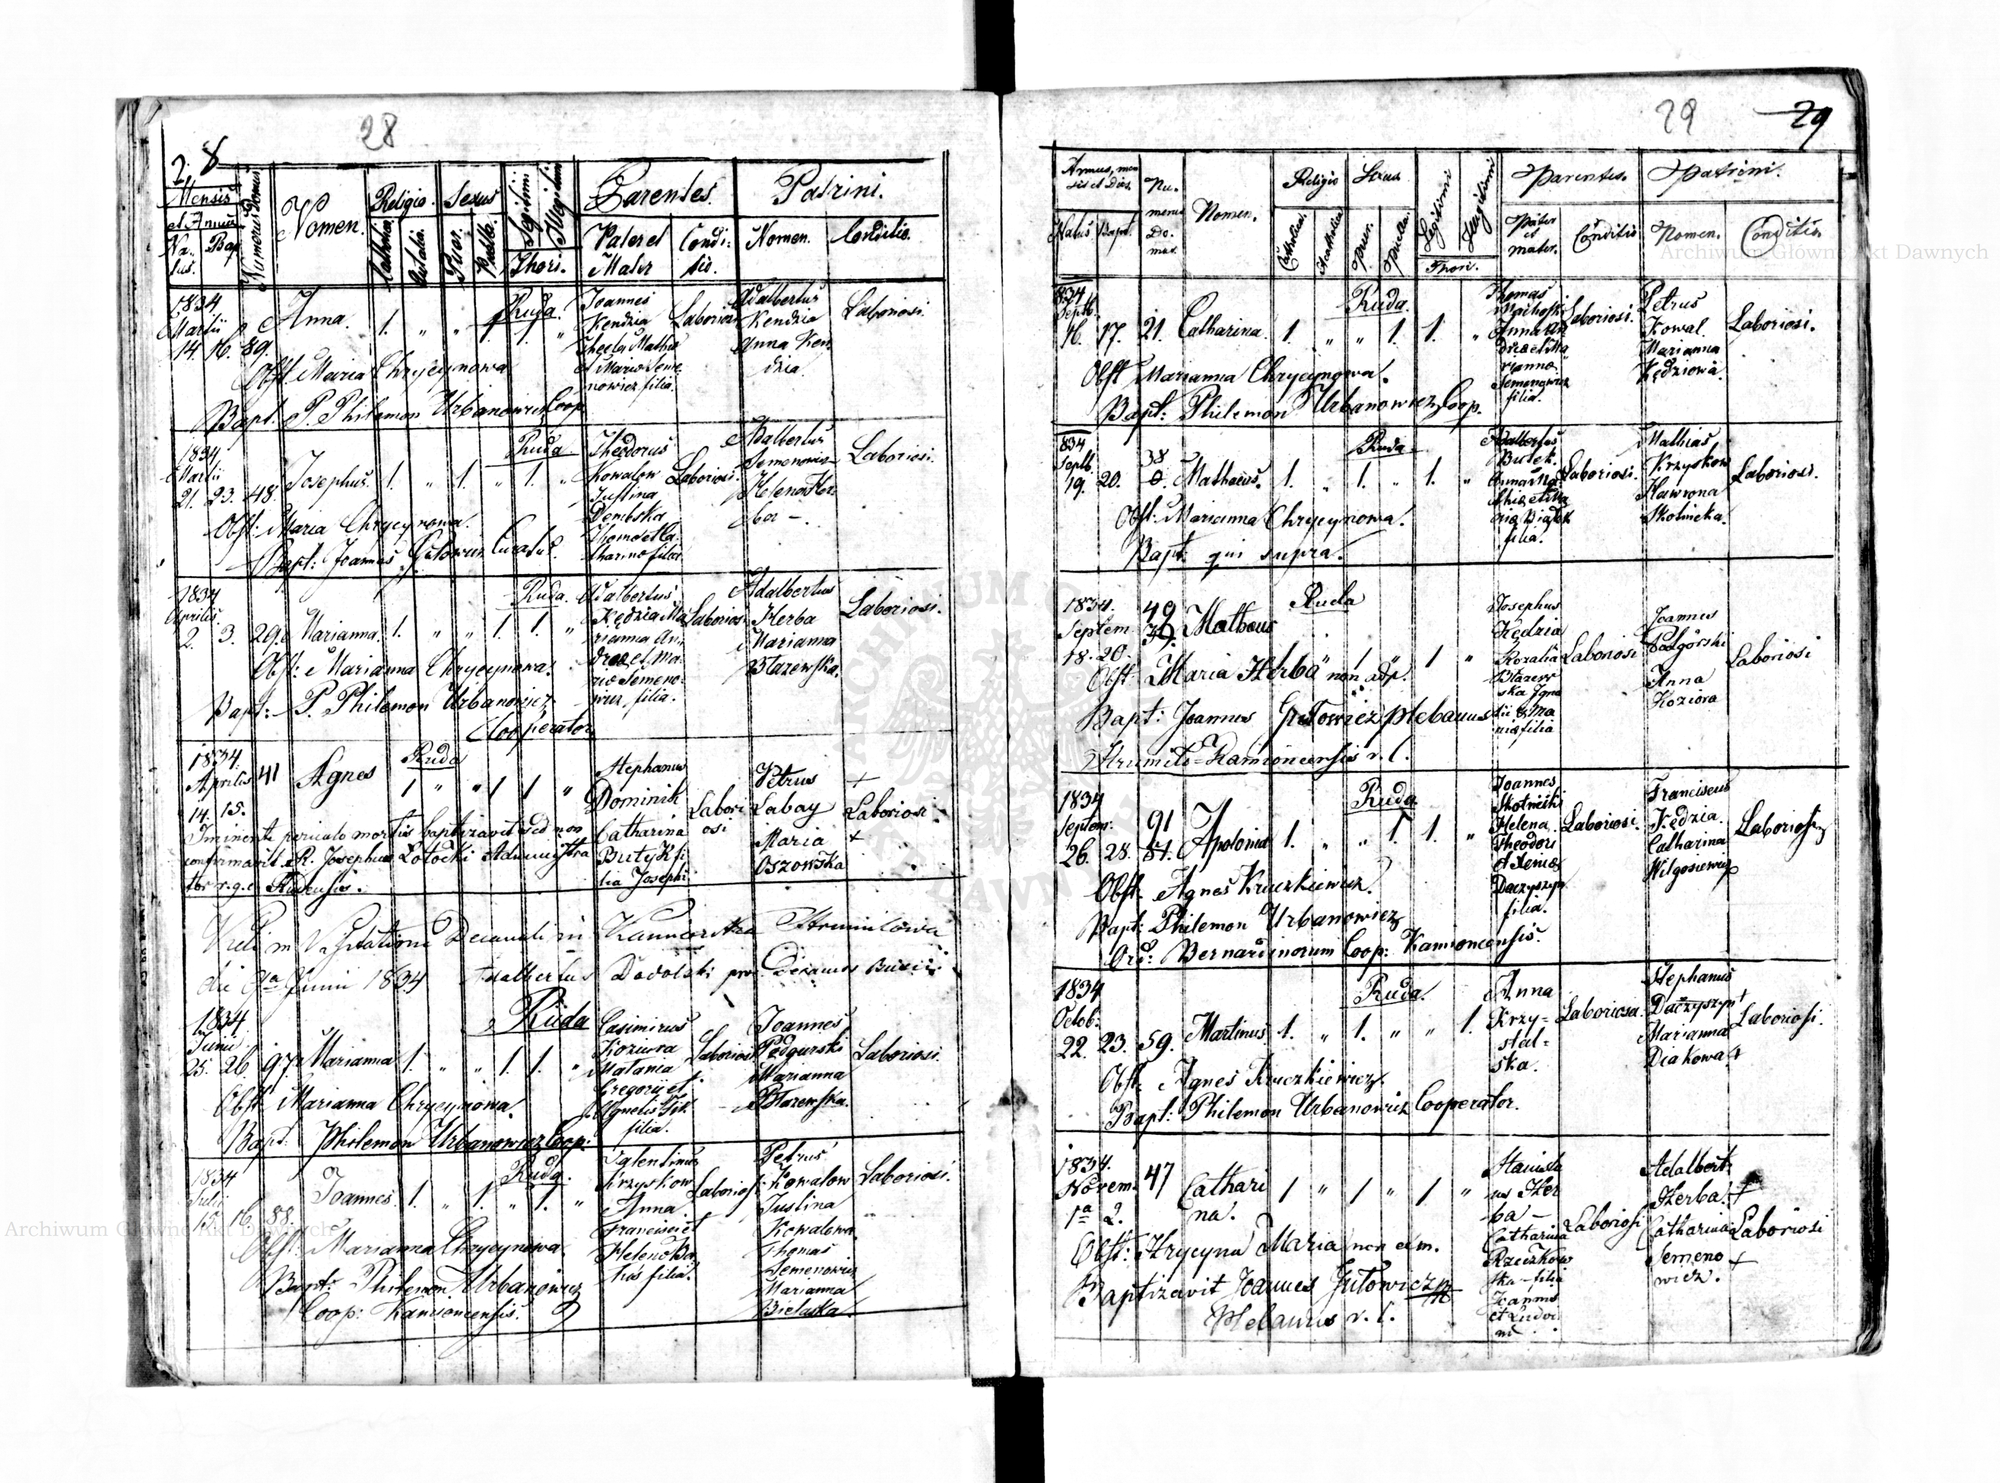 28
2. 8
Mensis et Annus
Natus. Bap.
Numerus Domus
Nomen.
Religio
Catholica
Sexus
Puer.
Puella.
Legitimi
Illegitimi
Thori.
Parentes.
Pater et Mater
Conditio.
Patrini.
Nomen.
Conditio.
1834
Martii
14. 16. 89. Anna. 1. " " 1. 1. "
Ruda.
Joannes
Kendzia
Laboriosi
Adalbertus
Kendzia
Anna Ken
dzia.
Laboriosi.
nowicz filia.
Obst. Maria Chrycynowa
Bapt. P. Philemon Urbanowicz Coop.
1834
Martii
21. 23. 48. Josephus. 1. " 1. " 1. "
Ruda
Theodorus
Kowalow
Justina
Dembska
Laboriosi.
Adalbertus
Semenowicz
Helena Her
ba -.
Laboriosi.
Obst: Maria Chrycynowa.
Bapt: Joannes Gutowicz Curatus.
1834
Aprilis.
2. 3. 29. Marianna. 1. " " 1. 1. "
Ruda.
Adalbertus
Kędzia Ma
rianna An
dreae et Ma
riae Semeno
wicz filia.
Laboriosi
Adalbertus
Herba
Marianna
Błazewska.
Laboriosi.
Obst: Marianna Chrycynowa.
Bapt: P. Philemon Urbanowicz
Cooperator
1834.
Aprilis 41 Agnes
Ruda
1 " " 1 1 "
14. 15.
Stephanus
Dominik
Catharina
Butyk fi
lia Josephi
Labori
osi
Petrus
Labay
Maria
Oszowska
+
Laboriosi.
+
Iminenti periculo mortis baptizavit sed non
confirmavit R. Josephus Łotocki Administra
tor r.g.c. Rudensis.
Vidi in Visitatione Decanali in Kamionka Strumilowa
die 9a Junii 1834 Adalbertus Dodolski pro Decanus Buscii
1834
Junii
25. 26. 97. Marianna 1. " " 1. 1. "
Ruda
Casimirus
Koziura
Malania
Gregorii et
Agnetis
filia.
Laboriosi
Joannes
Podgurski
Marianna
Błazewska.
Laboriosi.
Obst. Marianna Chrycynowa.
Bapt. Philemon Urbanowicz Coop:
1834
Julii
15. 16. 88. Joannes. 1. " 1. " 1. "
Ruda.
Valentinus
Krzyskow
Anna
Francisci et
Helenae
filia.
Laboriosi
Petrus
Kowalow
Justina
Kowalowa.
Thomas
Semenowicz
Marianna
Bielaska
Laboriosi.
Obst: Marianna Chrycynowa.
Bapt: Philemon Urbanowicz
Coop: Kamioncensis.
29
29
Annus, men
sis et Dies
Natus
Bapt.
Nu-
merus
Do-
mus.
Nomen.
Religio
Catholica.
Acatholica
Sexus
Puer.
Puella.
Legitimi
Illegitimi
Thori.
Parentes.
Pater
et
mater.
Conditio
Patrini.
Nomen.
Conditio
834
Septb.
16. 17. 21. Catharina. 1 " " 1 1. "
Ruda.
Thomas
Semenowicz
filia.
Laboriosi.
Petrus
Kowal.
Marianna
Kędziowa.
Laboriosi.
Obst Marianna Chrycynowa.
Bapt: Philemon Urbanowicz Coop.
834
Septb.
19. 20. 38 Mathaeus. 1. " 1. " 1. "
Ruda
Adalbertus
filia.
Laboriosi.
Mathias
Krzyskow
Hawrona
Skotnicka.
Laboriosi.
Obst: Marianna Chrycynowa.
Bapt qui supra.
1834.
Septem
18. 20.
49 Matheus
Ruda
" 1 " 1 "
Josephus
Kędzia
Rozalia
Błazew
ska Igna
tii & Ma
riae filia
Laboriosi
Joannes
Podgórski
Anna
Koziora
Laboriosi
Obst Maria Herba non adp.
Bapt: Joannes Gutowicz plebanus
Strumilo-Kamioncensis r. l.
1834
Septem.
26. 28. 91 Apolonia 1. " " 1. 1. "
Ruda
Joannes
Skotnicki
Helena
Theodori
et Xeniae
Daczyszyn
filia.
Laboriosi.
Franciscus
Kędzia.
Catharina
Wilgosiewicz
Laboriosi
Obst. Agnes Kruczkiewicz.
Bapt: Philemon Urbanowicz
Ord: Bernardinorum Coop: Kamioncensis.
1834
Octob:
22. 23. 59. Martinus 1. " 1. " " 1.
Ruda.
Anna
Krzy-
stal-
ska.
Laboriosa.
Stephanus
Daczyszyn +
Marianna
Diakowa +
Laboriosi.
Obst. Agnes Kruczkiewicz.
Bapt: Philemon Urbanowicz Cooperator.
1834.
Novem. 47 Cathari
1a 2. na. 1 " 1 " 1 "
Stanisla
us Her
ba -
Catharina
Rzeczkow
ska - filia
Joannis
et Ludovi
Laboriosi
Adalbert.
Herba. +
Catharina
Semeno
wicz. +
Laboriosi
Obst: Hrycyna Maria non exm.
Baptizavit Joannes Gutowicz
Plebanus r. l.
Archiwum Główne Akt Dawnych
Archiwum Główne Akt Dawnych